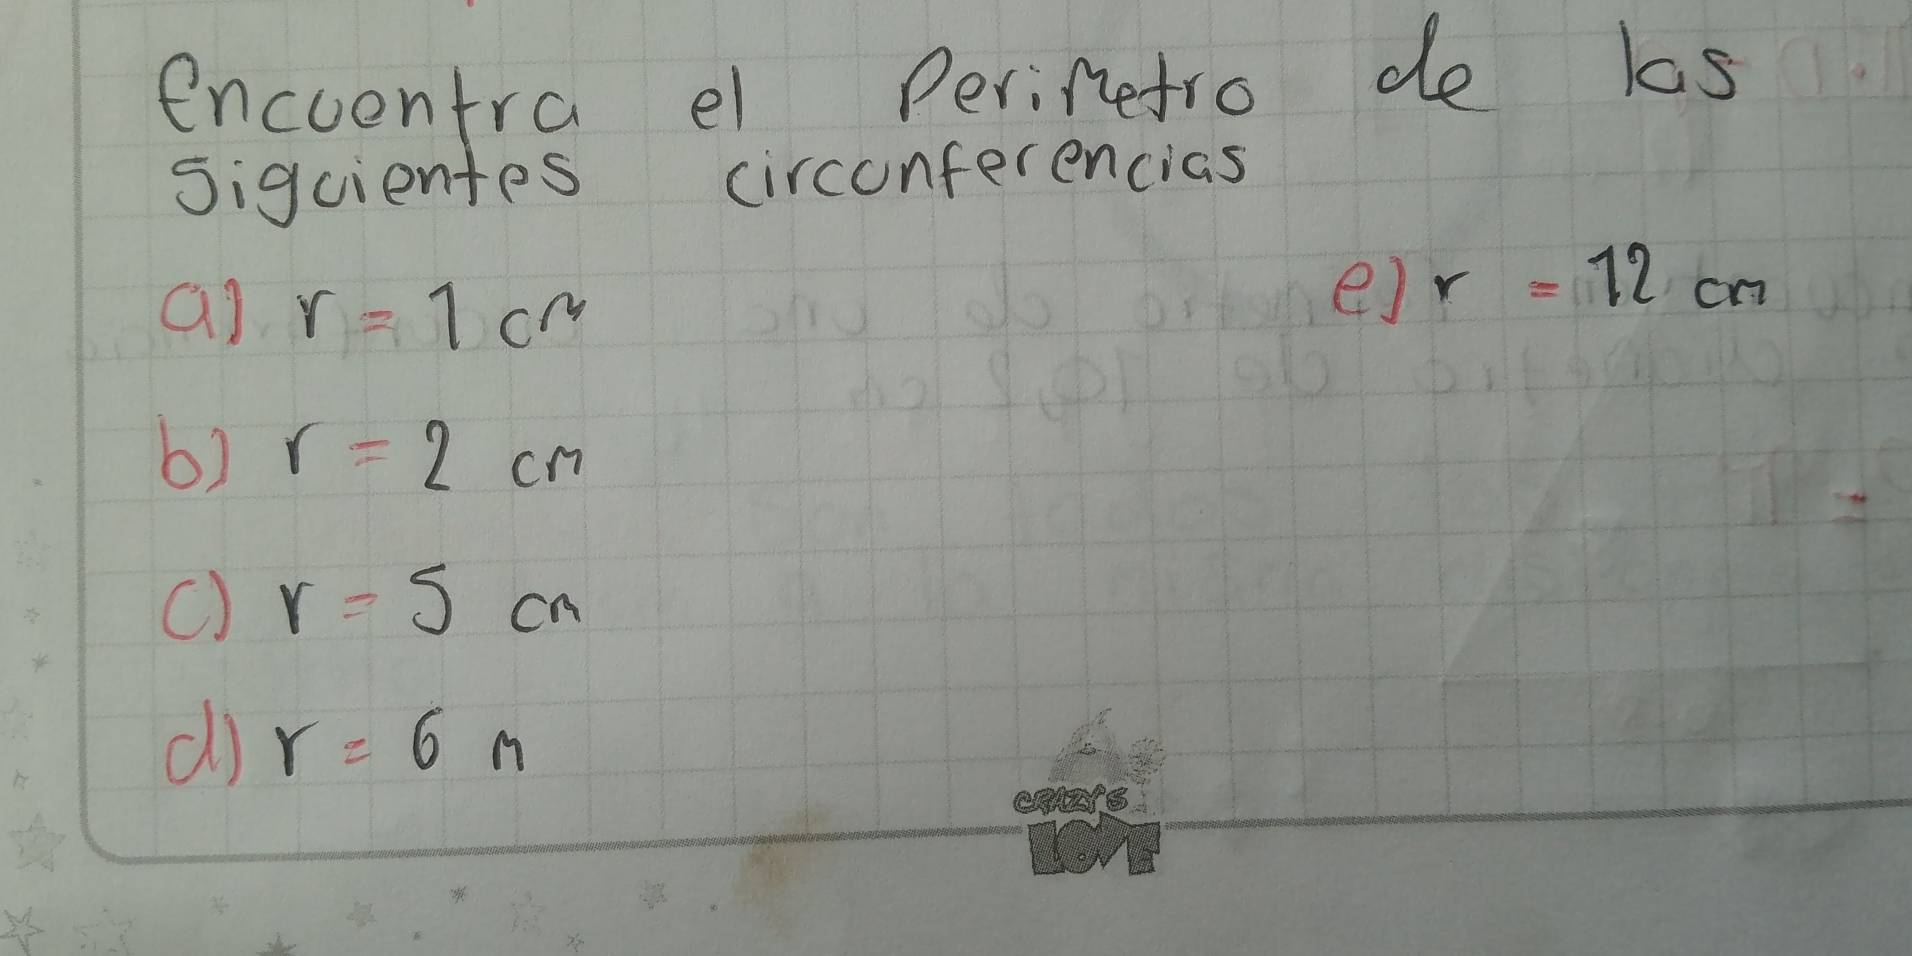 Encuentra el Perimetro de las
siguientes circunferencias
a) r = 1 cm
e) r = 12 cm
b) r = 2 cm
c) r = 5 cm
d) r = 6 m
CRAZY'S
LOVE